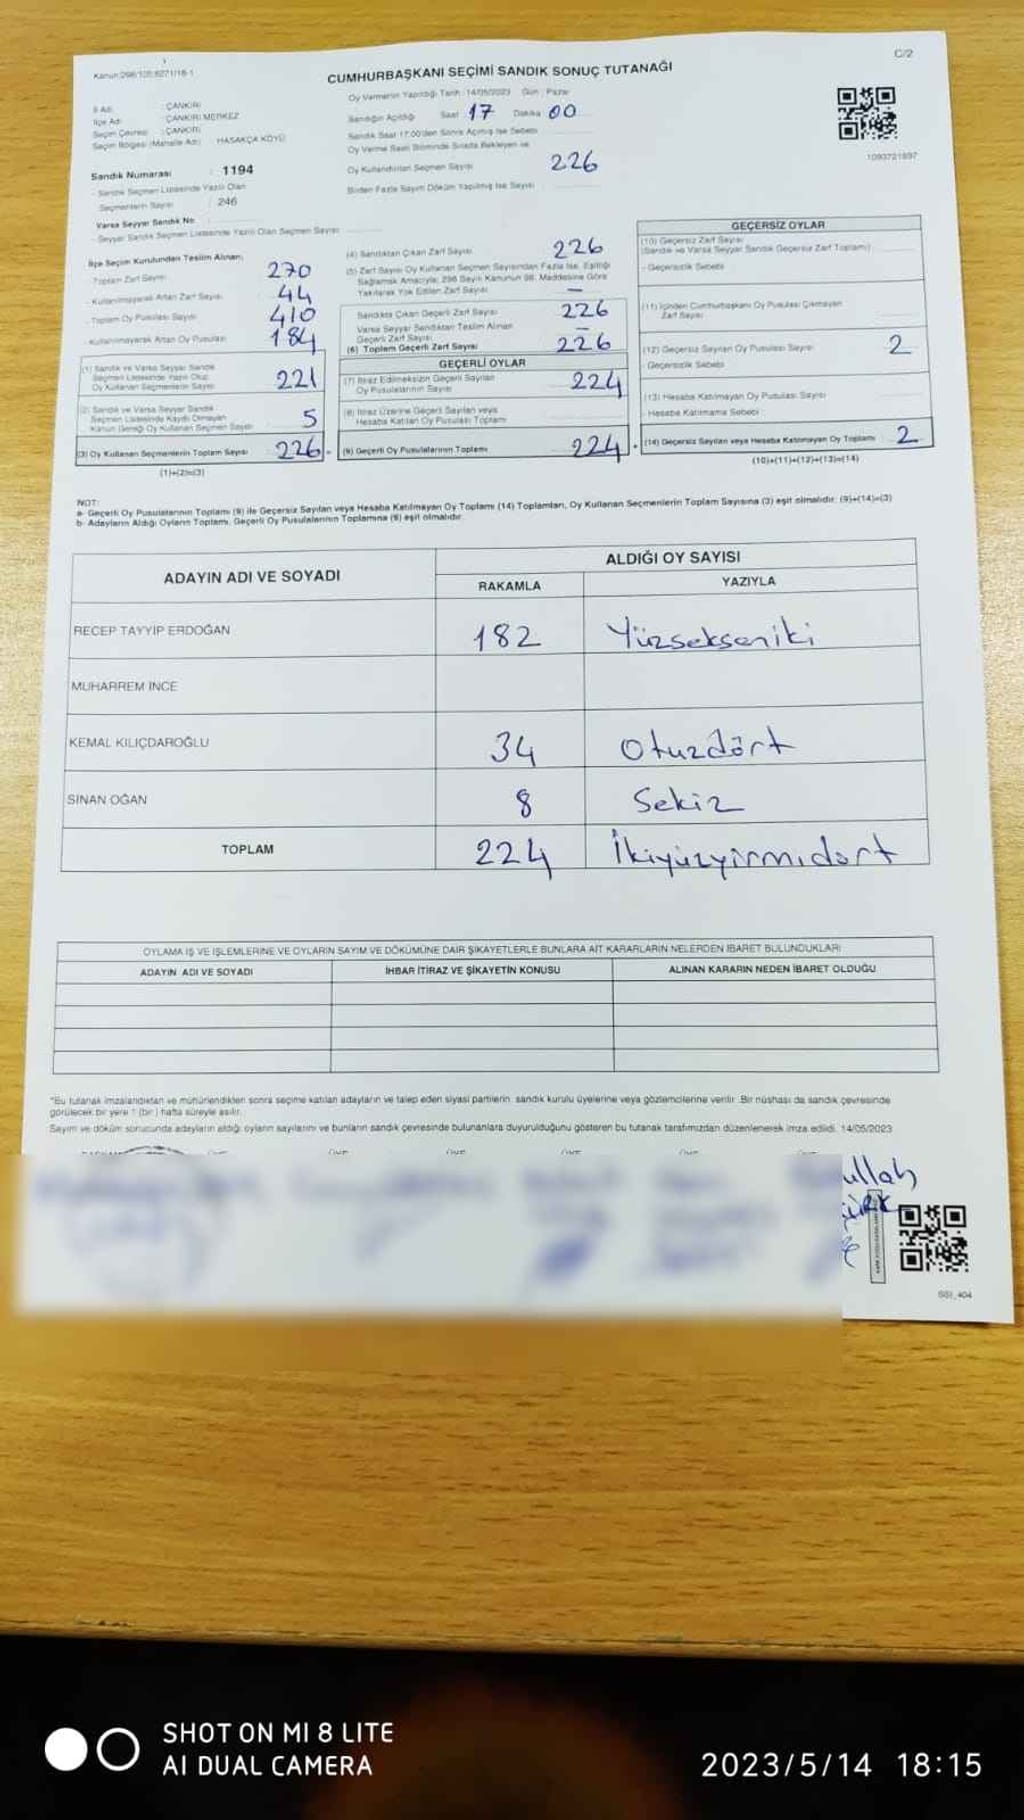 Kanun:298/105;6271/18-1
C/2
CUMHURBAŞKANI SEÇİMİ SANDIK SONUÇ TUTANAĞI
Oy Vermenin Yapıldığı Tarih : 14/05/2023 Gün : Pazar
İl Adı : ÇANKIRI
İlçe Adı : ÇANKIRI MERKEZ
Seçim Çevresi : ÇANKIRI
Seçim Bölgesi (Mahalle Adı) : HASAKÇA KÖYÜ
Sandığın Açıldığı Saat 17 Dakika 00
Sandık Saat 17:00'den Sonra Açılmış İse Sebebi
Oy Verme Saati Bitiminde Sırada Bekleyen ve
Oy Kullandırılan Seçmen Sayısı 226
Birden Fazla Sayım Döküm Yapılmış İse Sayısı
1093721897
Sandık Numarası : 1194
- Sandık Seçmen Listesinde Yazılı Olan
Seçmenlerin Sayısı : 246
Varsa Seyyar Sandık No
- Seyyar Sandık Seçmen Listesinde Yazılı Olan Seçmen Sayısı
İlçe Seçim Kurulundan Teslim Alınan;
- Toplam Zarf Sayısı 270
- Kullanılmayarak Artan Zarf Sayısı 44
- Toplam Oy Pusulası Sayısı 410
- Kullanılmayarak Artan Oy Pusulası 184
(1) Sandık ve Varsa Seyyar Sandık
Seçmen Listesinde Yazılı Olup
Oy Kullanan Seçmenlerin Sayısı 221
(2) Sandık ve Varsa Seyyar Sandık
Seçmen Listesinde Kaydı Olmayan
Kanun Gereği Oy Kullanan Seçmen Sayısı 5
(3) Oy Kullanan Seçmenlerin Toplam Sayısı 226
(1)+(2)=(3)
(4) Sandıktan Çıkan Zarf Sayısı 226
(5) Zarf Sayısı Oy Kullanan Seçmen Sayısından Fazla İse, Eşitliği
Sağlamak Amacıyla; 298 Sayılı Kanunun 98. Maddesine Göre
Yakılarak Yok Edilen Zarf Sayısı —
Sandıkta Çıkan Geçerli Zarf Sayısı 226
Varsa Seyyar Sandıktan Teslim Alınan
Geçerli Zarf Sayısı —
(6) Toplam Geçerli Zarf Sayısı 226
GEÇERLİ OYLAR
(7) İtiraz Edilmeksizin Geçerli Sayılan
Oy Pusulalarının Sayısı 224
(8) İtiraz Üzerine Geçerli Sayılan veya
Hesaba Katılan Oy Pusulası Toplamı
(9) Geçerli Oy Pusulalarının Toplamı 224
GEÇERSİZ OYLAR
(10) Geçersiz Zarf Sayısı
(Sandık ve Varsa Seyyar Sandık Geçersiz Zarf Toplamı)
- Geçersizlik Sebebi
(11) İçinden Cumhurbaşkanı Oy Pusulası Çıkmayan
Zarf Sayısı
(12) Geçersiz Sayılan Oy Pusulası Sayısı 2
Geçersizlik Sebebi
(13) Hesaba Katılmayan Oy Pusulası Sayısı
- Hesaba Katılmama Sebebi
(14) Geçersiz Sayılan veya Hesaba Katılmayan Oy Toplamı 2
(10)+(11)+(12)+(13)=(14)
NOT:
a- Geçerli Oy Pusulalarının Toplamı (9) ile Geçersiz Sayılan veya Hesaba Katılmayan Oy Toplamı (14) Toplamları, Oy Kullanan Seçmenlerin Toplam Sayısına (3) eşit olmalıdır. (9)+(14)=(3)
b- Adayların Aldığı Oyların Toplamı, Geçerli Oy Pusulalarının Toplamına (9) eşit olmalıdır.
ADAYIN ADI VE SOYADI
ALDIĞI OY SAYISI
RAKAMLA YAZIYLA
RECEP TAYYİP ERDOĞAN 182 Yüzsekseniki
MUHARREM İNCE
KEMAL KILIÇDAROĞLU 34 Otuzdört
SİNAN OĞAN 8 Sekiz
TOPLAM 224 İkiyüzyirmidört
OYLAMA İŞ VE İŞLEMLERİNE VE OYLARIN SAYIM VE DÖKÜMÜNE DAİR ŞİKAYETLERLE BUNLARA AİT KARARLARIN NELERDEN İBARET BULUNDUKLARI
ADAYIN ADI VE SOYADI İHBAR İTİRAZ VE ŞİKAYETİN KONUSU ALINAN KARARIN NEDEN İBARET OLDUĞU
*Bu tutanak imzalandıktan ve mühürlendikten sonra seçime katılan adayların ve talep eden siyasi partilerin, sandık kurulu üyelerine veya gözlemcilerine verilir. Bir nüshası da sandık çevresinde
görülecek bir yere 1 (bir) hafta süreyle asılır.
Sayım ve döküm sonucunda adayların aldığı oyların sayılarını ve bunların sandık çevresinde bulunanlara duyurulduğunu gösteren bu tutanak tarafımızdan düzenlenerek imza edildi. 14/05/2023
ullah
SSI_404
SHOT ON MI 8 LITE
AI DUAL CAMERA
2023/5/14 18:15